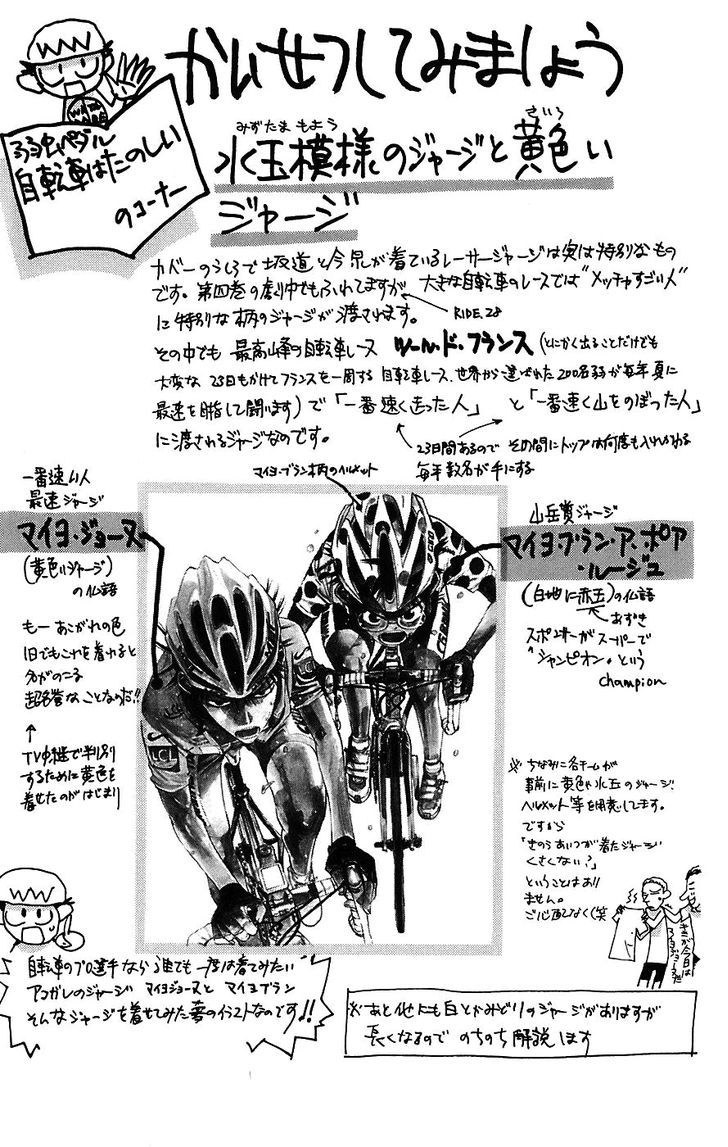 かいせつしてみましょう
弱虫ペダル
自転車はたのしい
のコーナー
みずたま もよう
水玉模様のジャージと黄色い
ジャージ
カバーのうしろで坂道と今泉が着ているレーサージャージは実は特別なもの
です。第四巻の劇中でもふれてますが、大きな自転車のレースでは"メッチャすごい人"
に特別な柄のジャージが渡されます。
RIDE.28
その中でも 最高峰の自転車レース ツール・ド・フランス (とにかく出ることだけでも
大変な 23日もかけてフランスを一周する 自転車レース、世界から選ばれた200名弱が毎年夏に
最速を目指して闘います)で「一番速く走った人」 と「一番速く山をのぼった人」
に渡されるジャージなのです。
23日間あるので その間にトップは何度も入れかわる
毎年数名が手にする
マイヨ・ブラン柄のヘルメット
一番速い人
最速ジャージ
マイヨ・ジョーヌ
(黄色いジャージ)
の仏語
もー あこがれの色
1日でもこれを着れると
名がのこる
超名誉なことなのだ!!
↑
TV中継で判別
するために黄色を
着せたのがはじまり
山岳賞ジャージ
マイヨ・ブラン・ア・ポア
・ルージュ
(白地に赤玉)の仏語
あずき
スポンサーがスーパーで
"シャンピオン"という
champion
※ちなみに各チームが
事前に黄色や水玉のジャージ、
ヘルメット等を用意してます。
ですから
「きのうあいつが着たジャージ
くさくない?」
ということはあり
ません。
ご心配なく(笑
自転車のプロ選手なら誰でも一度は着てみたい
アコガレのジャージ マイヨジョーヌと マイヨブラン
そんなジャージを着せてみた夢のイラストなのです!!
※あと他にも白とかみどりのジャージがありますが
長くなるので のちのち解説します